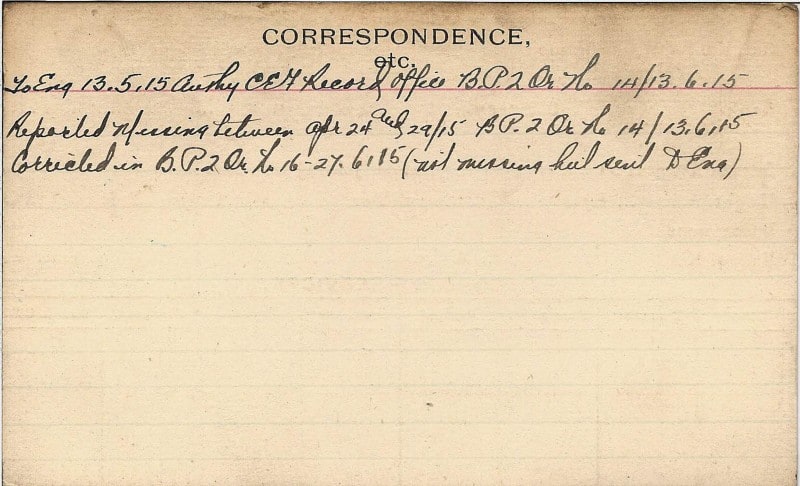 CORRESPONDENCE,
etc.
To Eng 13.5.15 Authy CEF Record Office B.P.2 Or. No 14/13.6.15
Reported Missing between Apr 24 and 29/15 B P. 2 Or. No 14/13.6.15
Corrected in B.P.2 Or. No 16-27.6.15 (not missing but sent to Eng)